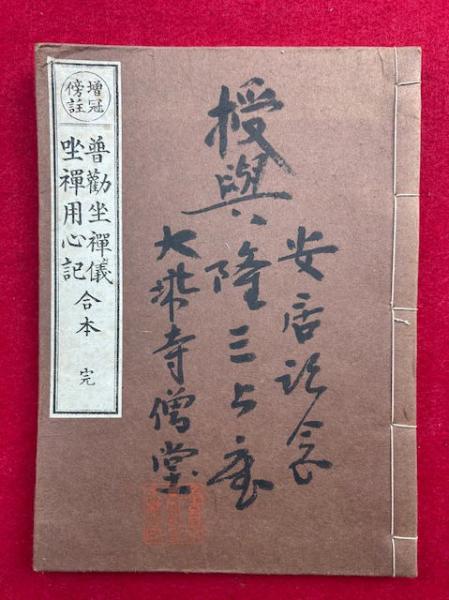 安居記念
授與 隆三上座
大乘寺僧堂
增冠
傍註
普勸坐禪儀
坐禪用心記
合本 完